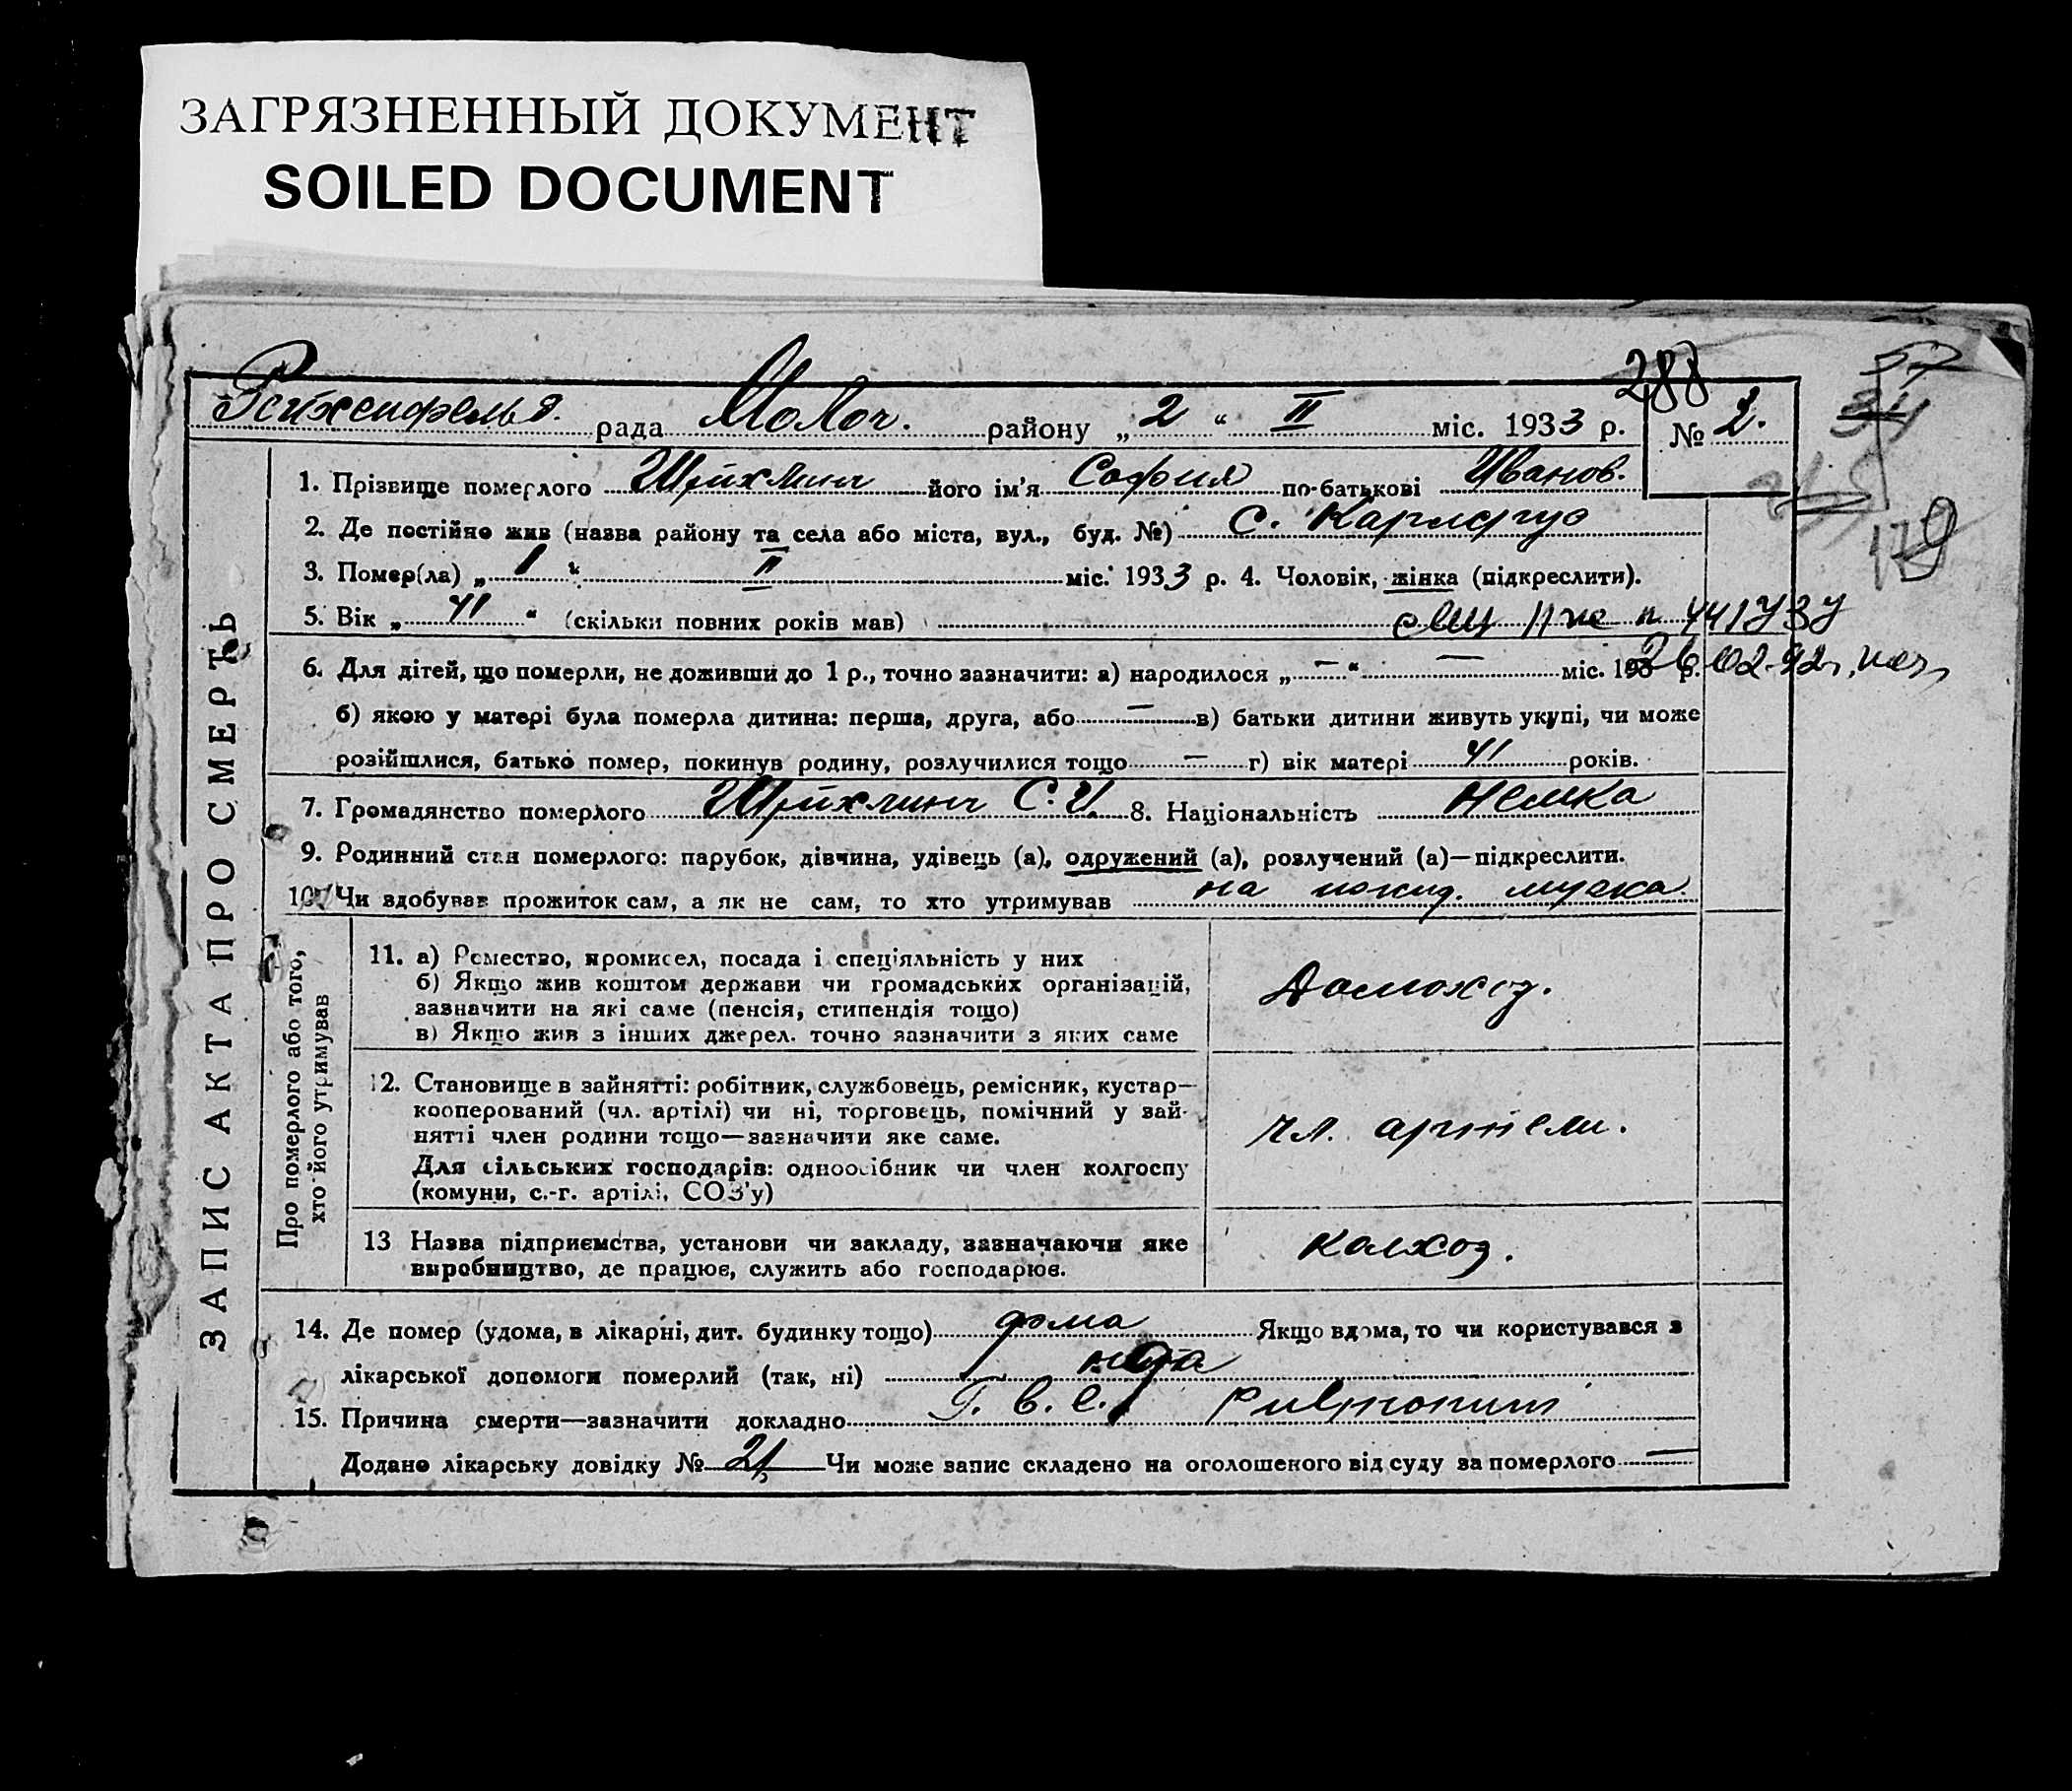 ЗАГРЯЗНЕННЫЙ ДОКУМЕНТ
SOILED DOCUMENT
288
Рейхенфельд. рада Молоч. району „2“ II міс. 1933 р. № 2.
ЗАПИС АКТА ПРО СМЕРТЬ
1. Прізвище померлого Шрихлинг його ім'я София по-батькові Иванов.
2. Де постійно жив (назва району та села або міста, вул., буд. №) с. Карлсруэ
3. Помер(ла) „1“ II міс. 1933 р. 4. Чоловік, жінка (підкреслити).
5. Вік „41“ (скільки повних років мав)
6. Для дітей, що померли, не доживши до 1 р., точно зазначити: а) народилося „—“ — міс. 193 р.
б) якою у матері була померла дитина: перша, друга, або — в) батьки дитини живуть укупі, чи може
розійшлися, батько помер, покинув родину, розлучилися тощо — г) вік матері 41 років.
7. Громадянство померлого Шрихлинг С. И. 8. Національність немка
9. Родинний стан померлого: парубок, дівчина, удівець (а), одружений (а), розлучений (а)—підкреслити.
10. Чи здобував прожиток сам, а як не сам, то хто утримував на мужа.
Про померлого або того,
хто його утримував
11. а) Ремество, промисел, посада і спеціяльність у них
б) Якщо жив коштом держави чи громадських організацій,
зазначити на які саме (пенсія, стипендія тощо)
в) Якщо жив з інших джерел, точно зазначити з яких саме
Домохоз.
12. Становище в зайнятті: робітник, службовець, ремісник, кустар—
кооперований (чл. артілі) чи ні, торговець, помічний у зай-
нятті член родини тощо—зазначити яке саме.
Для сільських господарів: одноосібник чи член колгоспу
(комуни, с.-г. артілі, СОЗ'у)
чл. артели.
13 Назва підприємства, установи чи закладу, зазначаючи яке
виробництво, де працює, служить або господарює.
колхоз.
14. Де помер (удома, в лікарні, дит. будинку тощо) дома Якщо вдома, то чи користувався з
лікарської допомоги померлий (так, ні)
15. Причина смерти—зазначити докладно T. b. c. pulmonum
Додано лікарську довідку № 21 Чи може запис складено на оголошеного від суду за померлого —